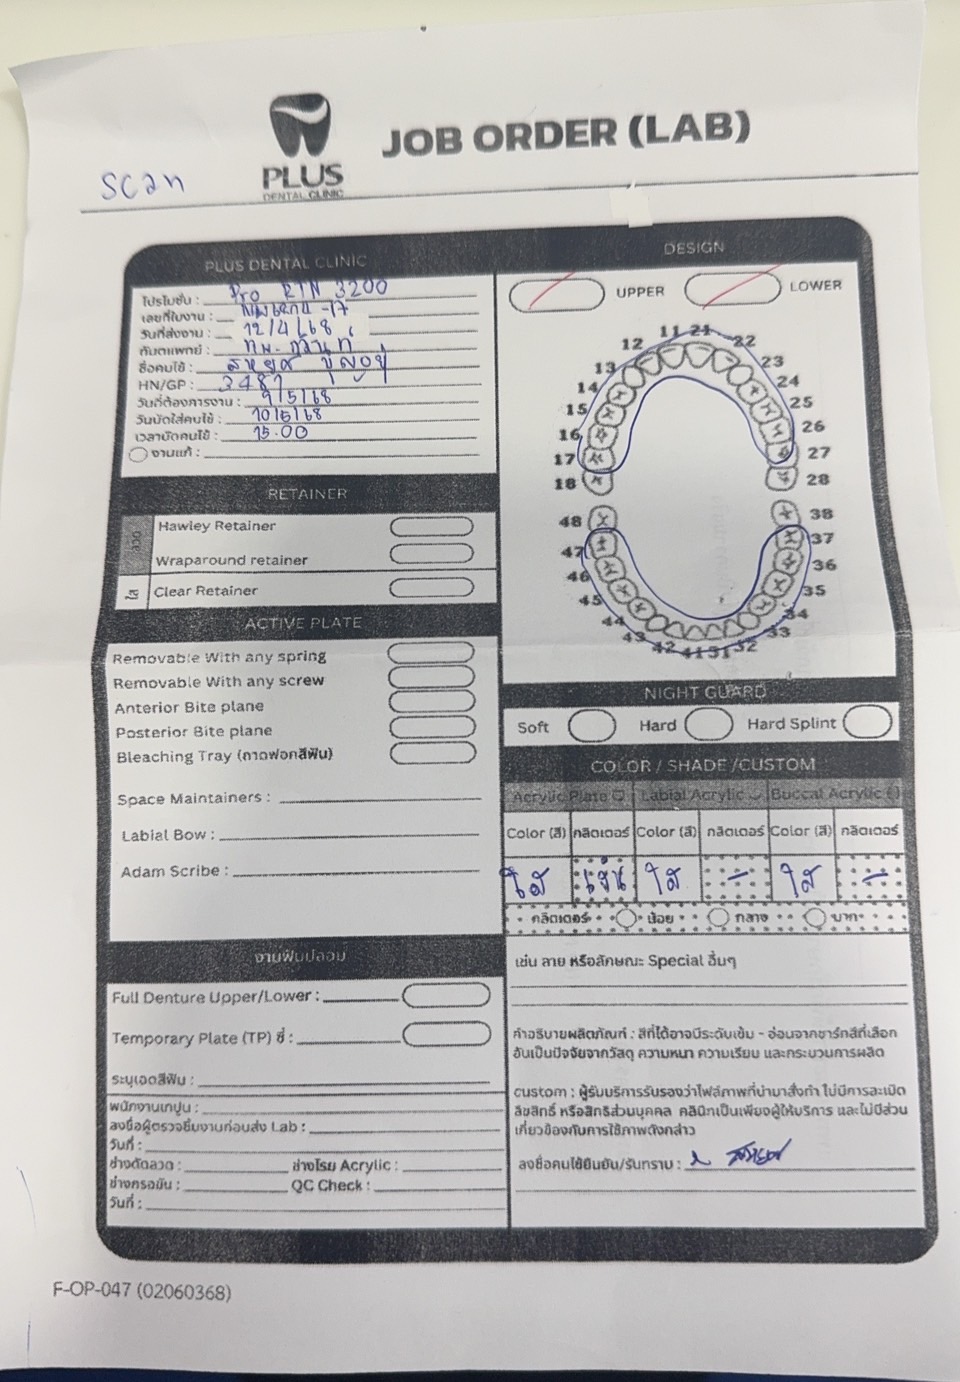 scan
PLUS
DENTAL CLINIC
JOB ORDER (LAB)
PLUS DENTAL CLINIC
โปรโมชั่น : Pro RTN 3200
เลขที่ใบงาน : -17
วันที่ส่งงาน : 12/4/68
ทันตแพทย์ : ทพ.
ชื่อคนไข้ :
HN/GP : 3487
วันที่ต้องการงาน : 9/5/68
วันนัดใส่คนไข้ : 10/5/68
เวลานัดคนไข้ : 15.00
งานแก้ :
RETAINER
ลวด
Hawley Retainer
Wraparound retainer
ใส
Clear Retainer
ACTIVE PLATE
Removable With any spring
Removable With any screw
Anterior Bite plane
Posterior Bite plane
Bleaching Tray (ถาดฟอกสีฟัน)
Space Maintainers :
Labial Bow :
Adam Scribe :
งานฟันปลอม
Full Denture Upper/Lower :
Temporary Plate (TP) ซี่ :
ระบุเฉดสีฟัน :
พนักงานเทปูน :
ลงชื่อผู้ตรวจชิ้นงานก่อนส่ง Lab :
วันที่ :
ช่างดัดลวด : ช่างโรย Acrylic :
ช่างกรอขัน : QC Check :
วันที่ :
DESIGN
UPPER LOWER
11 21
12 22
13 23
14 24
15 25
16 26
17 27
18 28
48 38
47 37
46 36
45 35
44 34
43 33
42 41 31 32
NIGHT GUARD
Soft Hard Hard Splint
COLOR / SHADE /CUSTOM
Acrylic Plate Labial Acrylic Buccal Acrylic
Color (สี) กลิตเตอร์ Color (สี) กลิตเตอร์ Color (สี) กลิตเตอร์
ใส ใส - ใส -
กลิตเตอร์ น้อย กลาง มาก
เช่น ลาย หรือลักษณะ Special อื่นๆ
คำอธิบายผลิตภัณฑ์ : สีที่ได้อาจมีระดับเข้ม - อ่อนจากชาร์ทสีที่เลือก
อันเป็นปัจจัยจากวัสดุ ความหนา ความเรียบ และกระบวนการผลิต
custom : ผู้รับบริการรับรองว่าไฟล์ภาพที่นำมาสั่งทำ ไม่มีการละเมิด
ลิขสิทธิ์ หรือสิทธิส่วนบุคคล คลินิกเป็นเพียงผู้ให้บริการ และไม่มีส่วน
เกี่ยวข้องกับการใช้ภาพดังกล่าว
ลงชื่อคนไข้ยืนยัน/รับทราบ :
F-OP-047 (02060368)